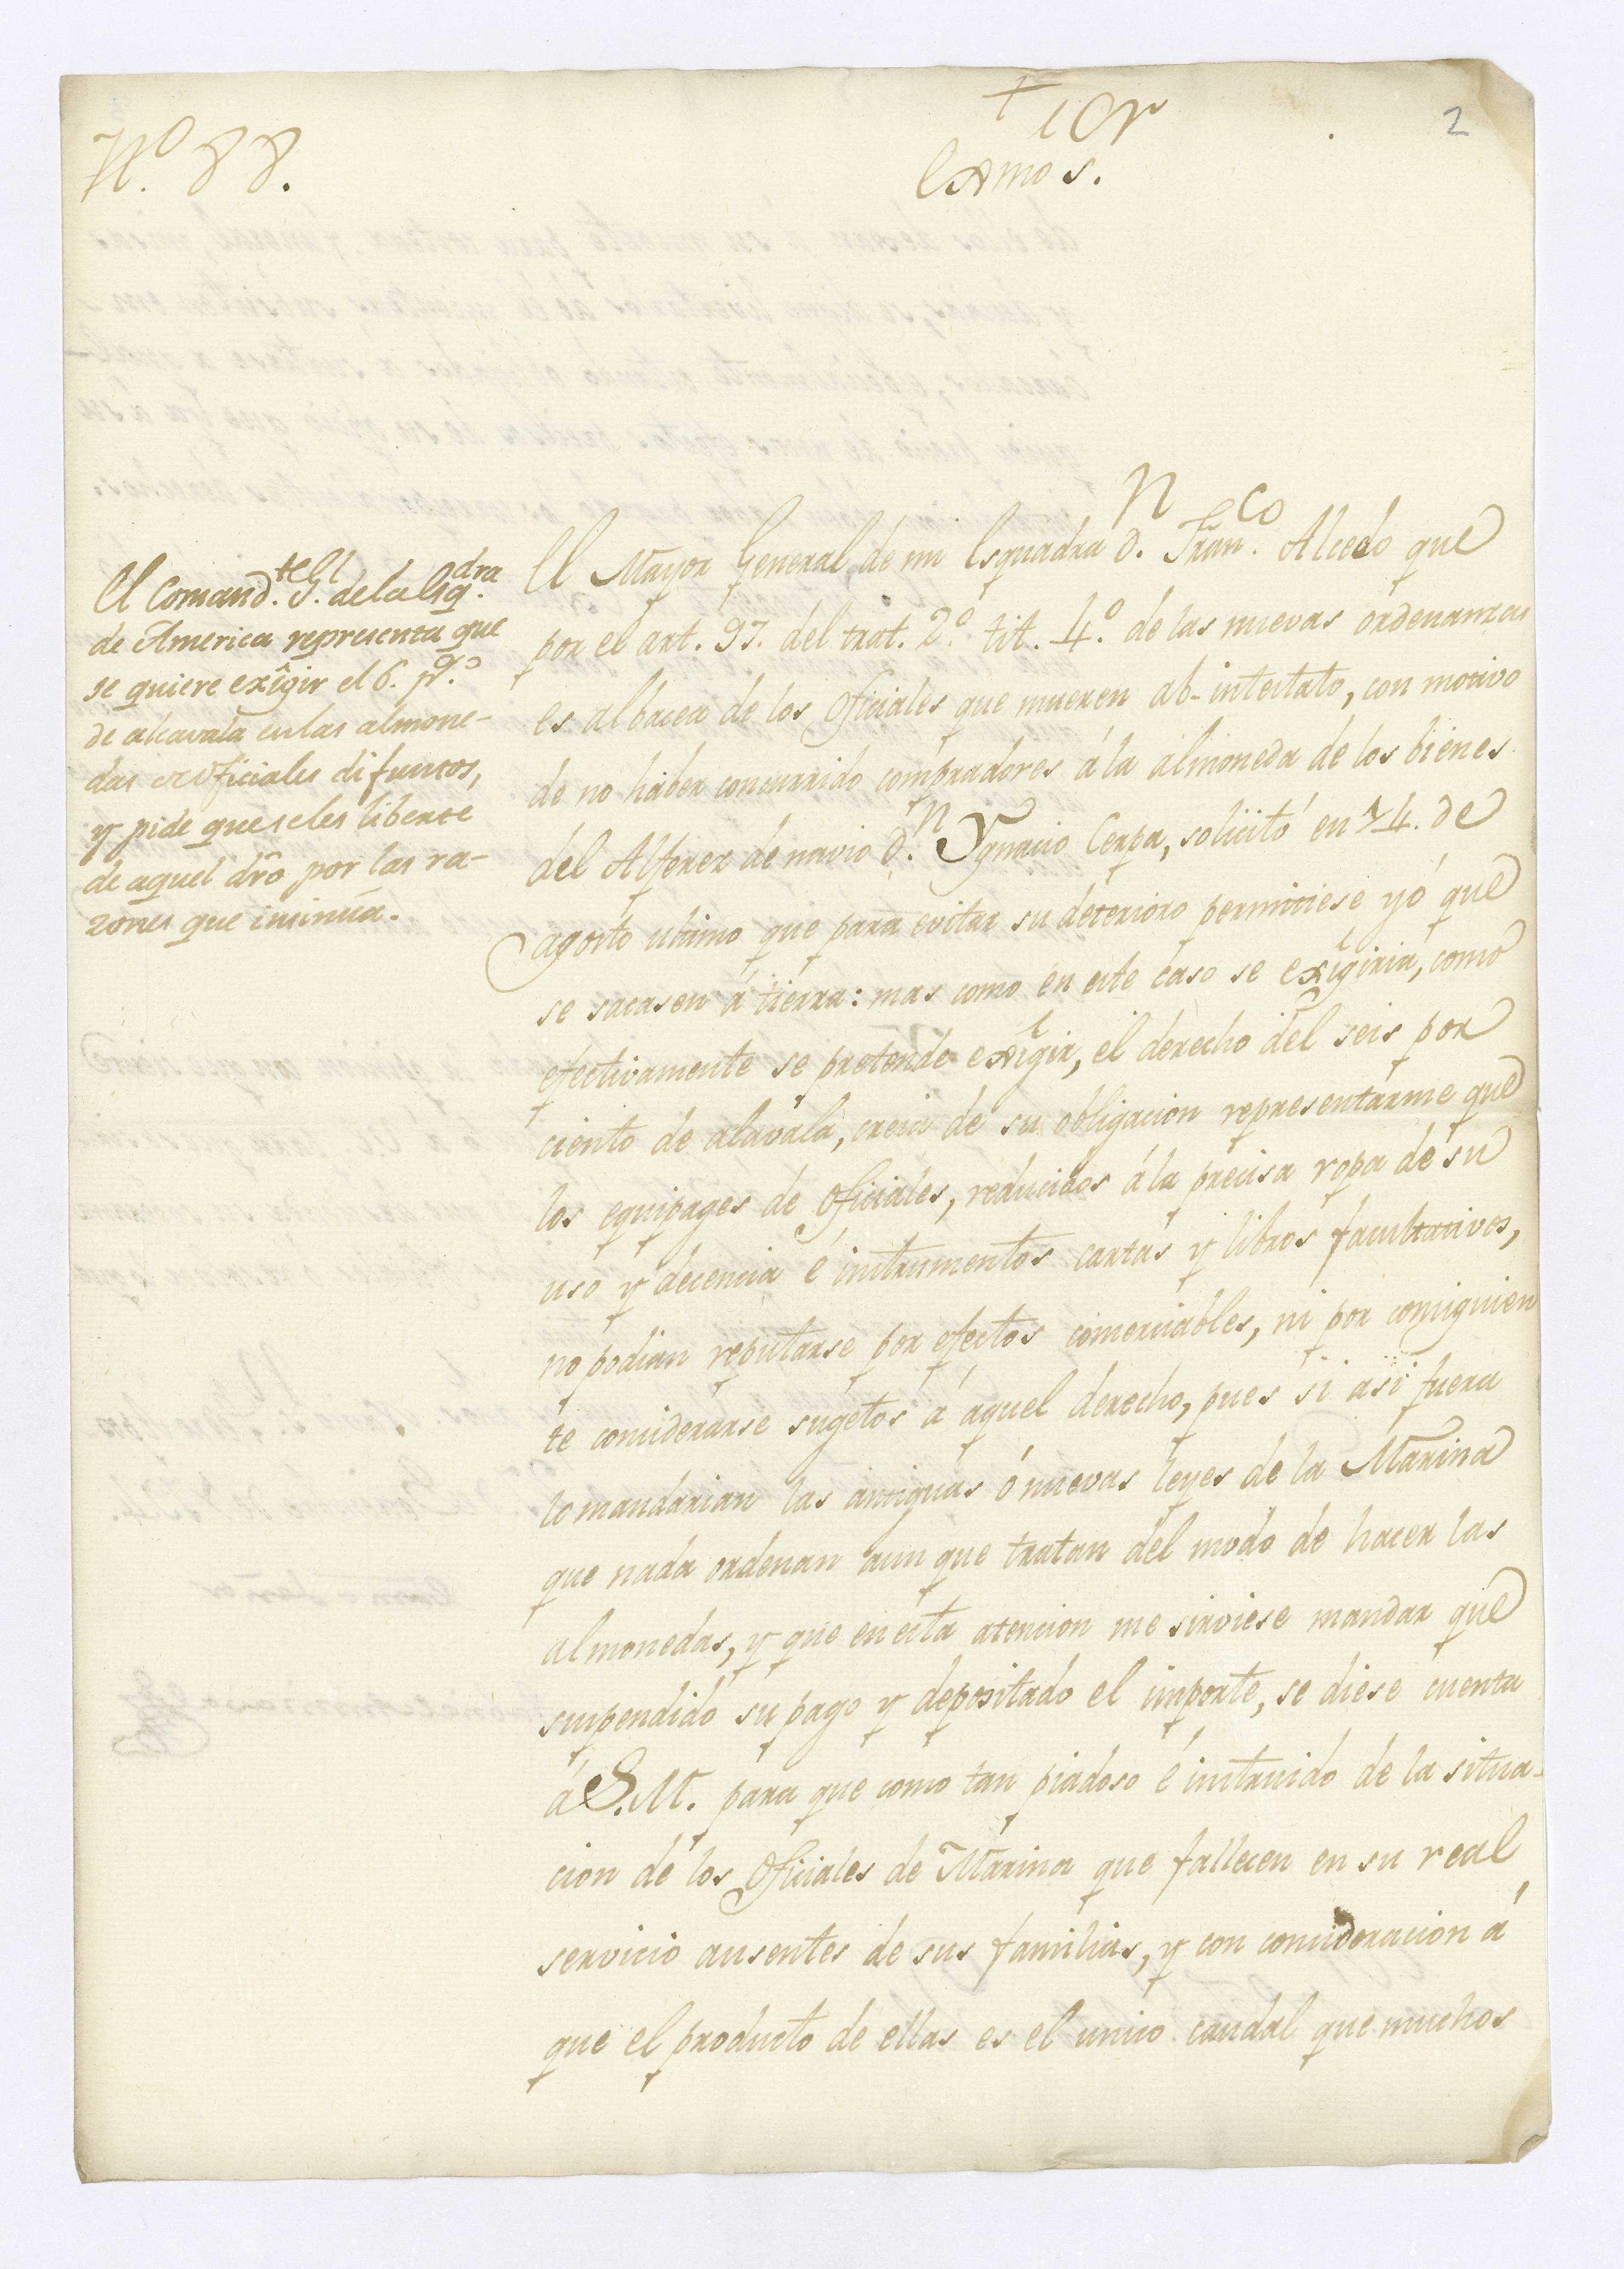 Nº 88.
+
Exmo. Sor.
2
El Comand.te Gl. de la Esq.dra
de America representa que
se quiere exîgir el 6. p.%
de alcavala en las almone-
das de oficiales difuntos,
y pide que se les liberte
de aquel dro por las ra-
zones que insinúa.
El Mayor General de mi Esquadra D.n Fran.co Alcedo que
por el art. 97. del trat. 2.º tit. 4.º de las nuevas ordenanzas
es albacea de los Oficiales que mueren ab-intestato, con motivo
de no haber concurrido compradores á la almoneda de los bienes
del Alferez de navio D.n Ygnacio Cerpa, solicitó en 14. de
agosto ultimo que para evitar su deterioro permitiese yó que
se sacasen á tierra: mas como en este caso se exîgiria, como
efectivamente se pretende exîgir, el derecho del seis por
ciento de alavala, creia de su obligacion representarme que
los equipages de Oficiales, reducidos á la precisa ropa de su
uso y decencia é instrumentos cartas y libros facultativos,
no podian reputarse por efectos comerciables, ni por consiguien
te considerarse sugetos á aquel derecho, pues si asi fuera
lo mandarian las antiguas ó nuevas leyes de la Marina
que nada ordenan aunque tratan del modo de hacer las
almonedas, y que en esta atencion me sirviese mandar que
suspendido su pago y depositado el importe, se diese cuenta
á S.M. para que como tan piadoso é instruido de la situa-
cion de los Oficiales de Marina que fallecen en su real
servicio ausentes de sus familias, y con consideracion á
que el producto de ellas es el unico caudal que muchos